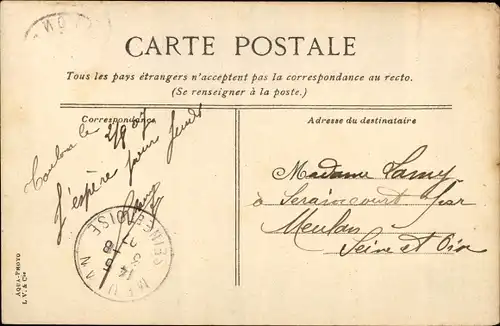 CARTE POSTALE
Tous les pays étrangers n'acceptent pas la correspondance au recto.
(Se renseigner à la poste.)
Correspondance
Adresse du destinataire
le 2/8 07
J'espère pour Jeudi
Madame Lamy
à Seraincourt par
Meulan
Seine et Oise
SEINE ET OISE
MEULAN
AQUA-PHOTO
L. V. & Cie